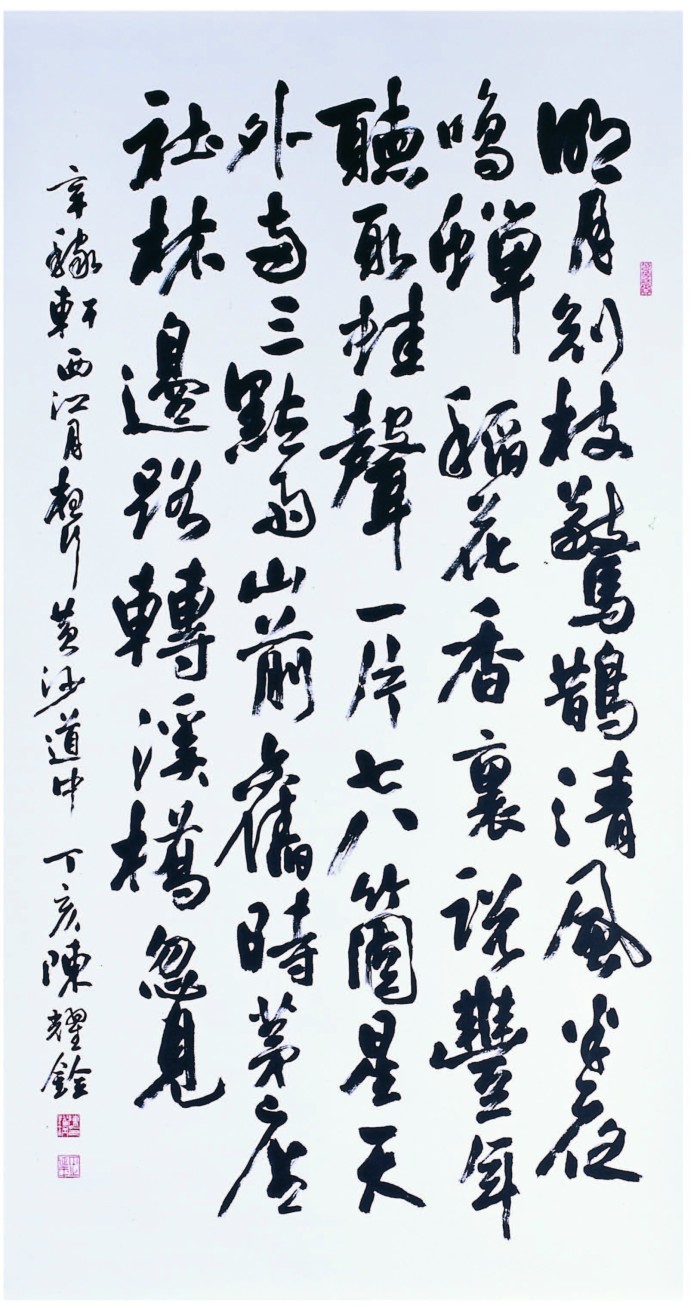 明月別枝驚鵲清風半夜
鳴蟬稻花香裏說豐年
聽取蛙聲一片七八箇星天
外兩三點雨山前舊時茅店
社林邊路轉溪橋忽見
辛稼軒西江月夜行黃沙道中 丁亥陳耀銓